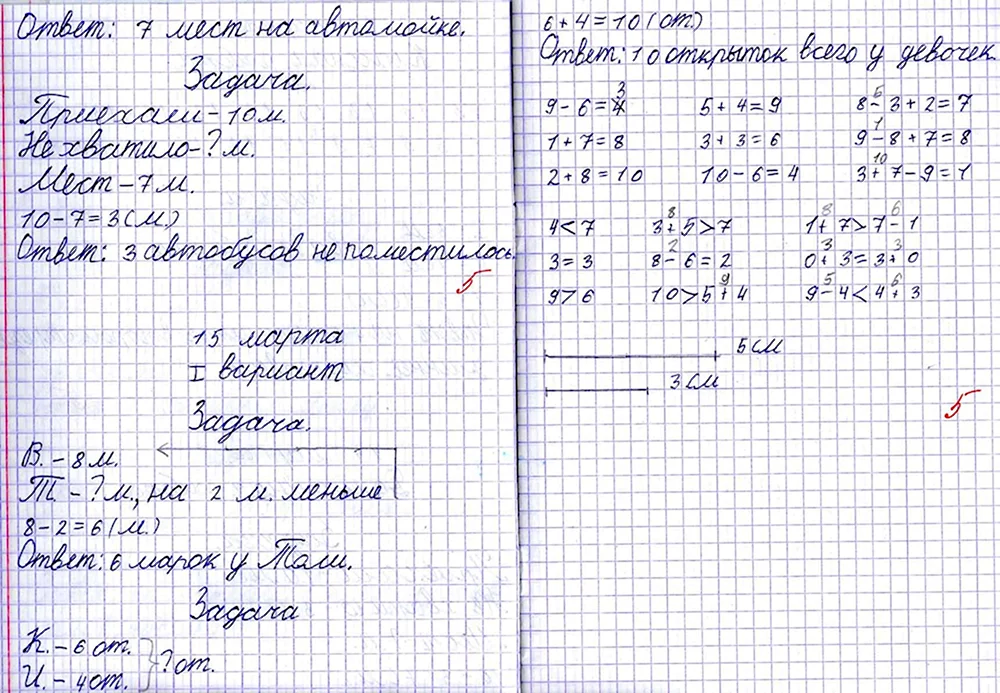 Ответ: 7 мест на автомойке.
Задача.
Приехали - 10 м.
Не хватило - ? м.
Мест - 7 м.
10 - 7 = 3 (м.)
Ответ: 3 автобусов не поместилось.
5
15 марта
I вариант
Задача.
В. - 8 м.
Т. - ? м., на 2 м. меньше
8 - 2 = 6 (м.)
Ответ: 6 марок у Толи.
Задача
К. - 6 от.
И. - 4 от.
? от.
6 + 4 = 10 (от.)
Ответ: 10 открыток всего у девочек
3
5
9 - 6 = 4 5 + 4 = 9 8 - 3 + 2 = 7
1
1 + 7 = 8 3 + 3 = 6 9 - 8 + 7 = 8
10
2 + 8 = 10 10 - 6 = 4 3 + 7 - 9 = 1
8 8 6
4 < 7 3 + 5 > 7 1 + 7 > 7 - 1
2 3 3
3 = 3 8 - 6 = 2 0 + 3 = 3 + 0
9 5 6
9 > 6 10 > 5 + 4 9 - 4 < 4 + 3
5 см
3 см
5